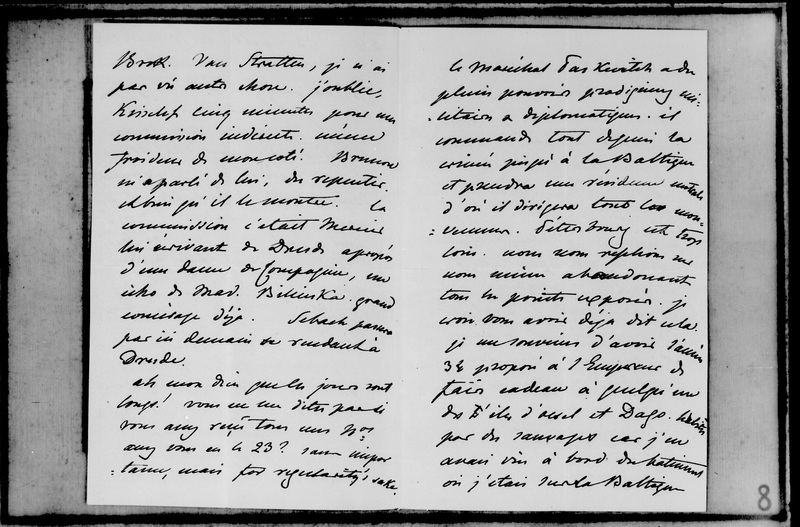 Brok. Van Stratten, je n'ai
par vu autre chose. j'oublie,
Kisseleff cinq minutes pour une
commission indirecte. même
froideur de mon coté. Brunnow
m'a parlé de lui, du repentir
et bien qu'il le montre. la
commission c'était Meriem
lui écrivant de Dresde apropos
d'une dame de Compagnie, un
echo de Mad. Bilinska. grand
comérage déja. Sebach passera
par ici demain se rendant à
Dresde.
ah mon dieu que les jours sont
longs! vous ne me dites pas si
vous avez reçu tous mes Nos
avez vous eu le 23? sans impor
-tance, mais for regularity's sake.
le Maréchal Paskewitch a du
pleins pouvoirs prodigieux mi-
-litaires & diplomatiques. il
commande tout depuis la
crimée jusqu'à la Baltique
et prendra une résidence centrale
d'où il dirigera tout les mou-
-vements. Petersbourg est trop
loin. nous nous replions
nous même abandonant
tous les points exposés. je
crois vous avoir déja dit cela.
je me souviens d'avoir l'année
34 proposé à l'Empereur de
faire cadeau à quelqu'un
des îles d'oesel et Dago. habitées
par des sauvages car j'en
avais vus à bord du batiment
où j'étais sur la Baltique
8